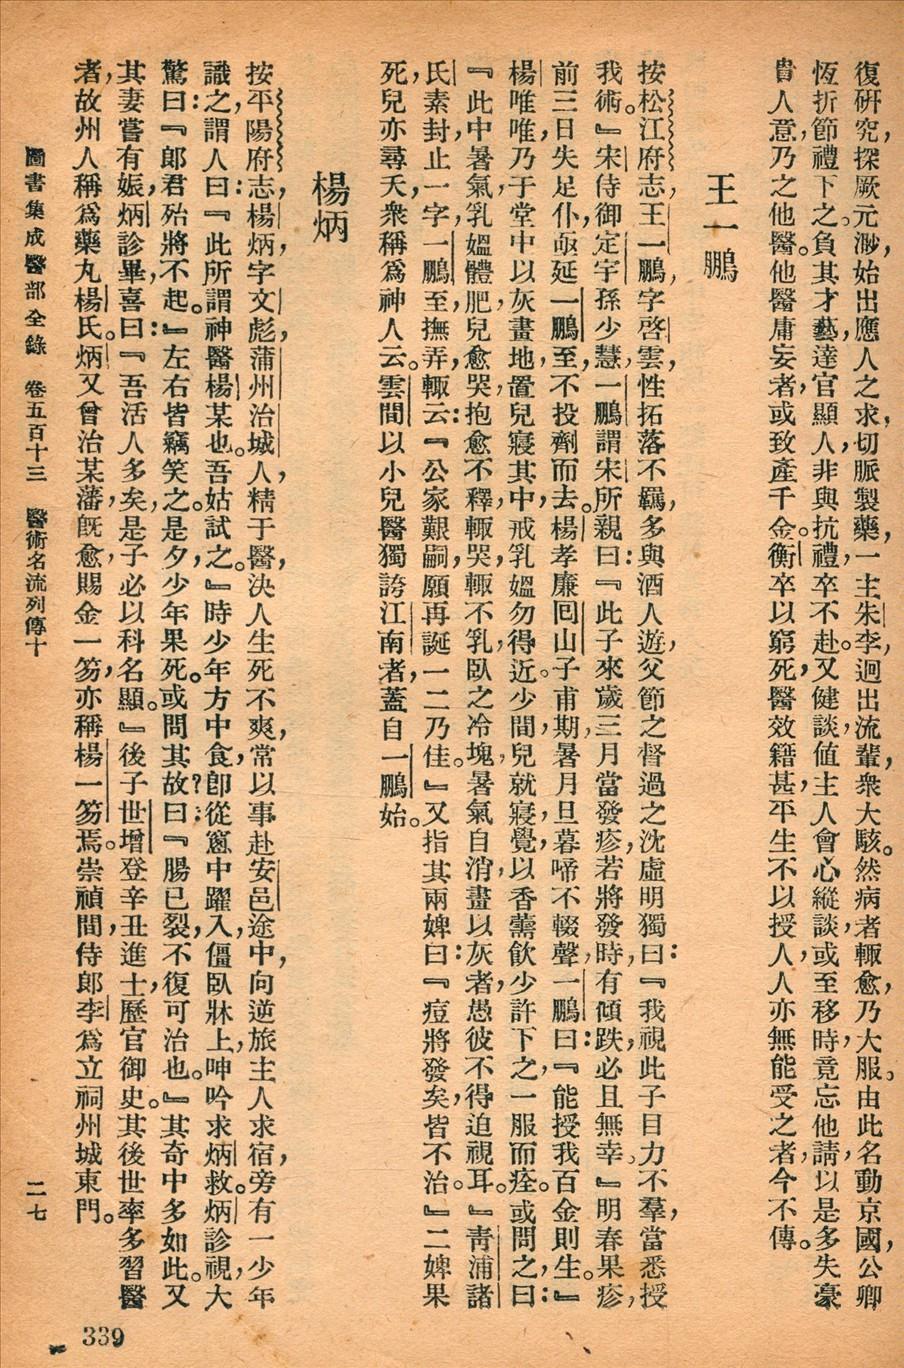 復硏究,探厥元渺,始出應人之求,切脈製藥,一主朱李,迥出流輩,衆大駭。然病者輒愈,乃大服。由此名動京國,公卿
恆折節禮下之。負其才藝,達官顯人,非與抗禮,卒不赴。又健談,値主人會心縱談,或至移時,竟忘他請,以是多失豪
貴人意,乃之他醫。他醫庸妄者,或致產千金。衡卒以窮死,醫效籍甚,平生不以授人,人亦無能受之者,今不傳。
王一鵬
按松江府志,王一鵬,字啓雲,性拓落不羈,多與酒人遊,父節之督過之,沈虛明獨曰:『我視此子目力不羣,當悉授
我術。』宋侍御定宇孫少慧,一鵬謂宋所親曰:『此子來歲三月當發疹,若將發時,有傾跌,必且無幸。』明春果疹,
前三日失足仆,亟延一鵬至,不投劑而去。楊孝廉囘山子甫期,暑月旦暮啼不輟聲,一鵬曰:『能授我百金則生。』
楊唯唯,乃于堂中以灰畫地,置兒寢其中,戒乳媼勿得近。少間,兒就寢,覺,以香薷飮少許下之,一服而痊。或問之,曰:
『此中暑氣,乳媼體肥,兒愈哭,抱愈不釋,輒哭,輒不乳,臥之冷塊,暑氣自消,畫以灰者,愚彼不得迫視耳。』靑浦諸
氏素封,止一字,一鵬至,撫弄,輒云:『公家艱嗣,願再誕一二乃佳。』又指其兩婢曰:『痘將發矣,皆不治。』二婢果
死,兒亦尋夭,衆稱爲神人云。雲間以小兒醫獨誇江南者,蓋自一鵬始。
楊炳
按平陽府志,楊炳,字文彪,蒲州治城人,精于醫,決人生死不爽,常以事赴安邑,途中,向逆旅主人求宿,旁有一少年
識之,謂人曰:『此所謂神醫楊某也。吾姑試之。』時少年方中食,卽從窻中躍入,僵臥牀上,呻吟求炳救。炳診視,大
驚曰:『郎君殆將不起。』左右皆竊笑之。是夕,少年果死。或問其故?曰:『腸已裂,不復可治也。』其奇中多如此。又
其妻嘗有娠,炳診畢,喜曰:『吾活人多矣,是子必以科名顯。』後子世增登辛丑進士,歷官御史。其後世率多習醫
者,故州人稱爲藥丸楊氏。炳又曾治某藩,旣愈,賜金一笏,亦稱楊一笏焉。崇禎間,侍郎李爲立祠州城東門。
圖書集成醫部全錄 卷五百十三 醫術名流列傳十 二七
339